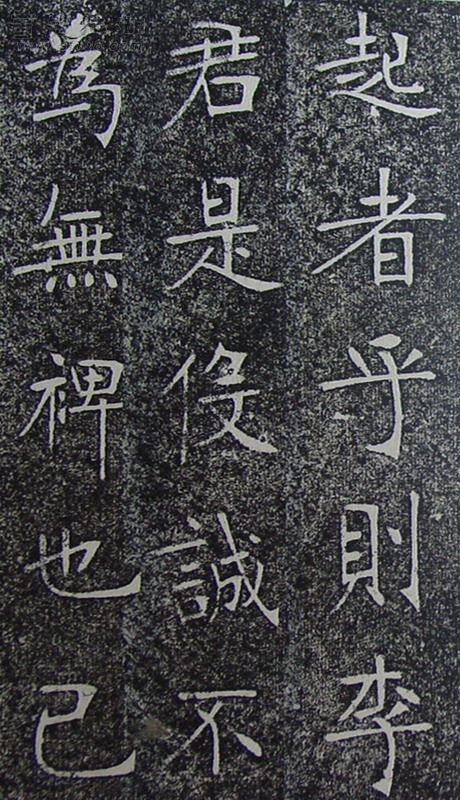 起者乎則李
君是伇誠不
為無裨也已